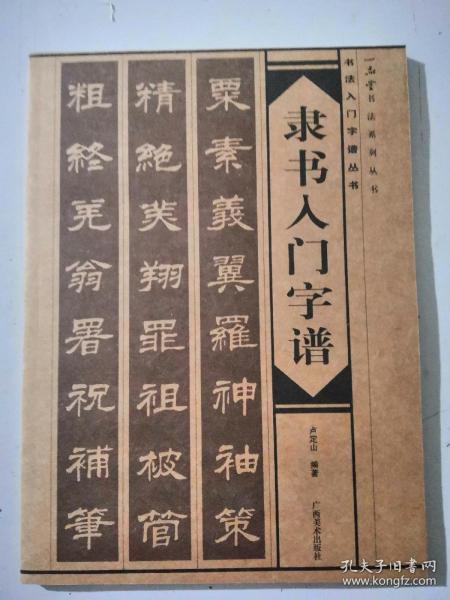 一品堂书法系列丛书
书法入门字谱丛书
隶书入门字谱
卢定山 编著
广西美术出版社
粟素義翼羅神袖策
精絶美翔罪祖被管
粗終羌翁署祝補筆
孔夫子旧书网
www.kongfz.com